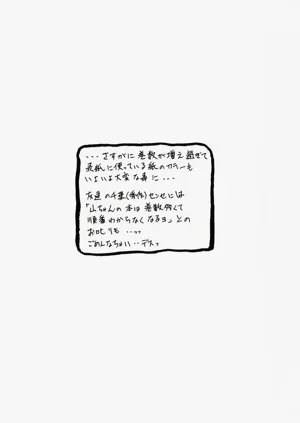 ...さすがに巻数が増え過ぎて
表紙に使っている紙のカラーも
いよいよ大変な事に...
友達の千葉(秀作)センセには
「山ちゃんの本は巻数多くて
順番わからなくなるヨ」との
お叱りも...
ごめんなちゃい..デスッ